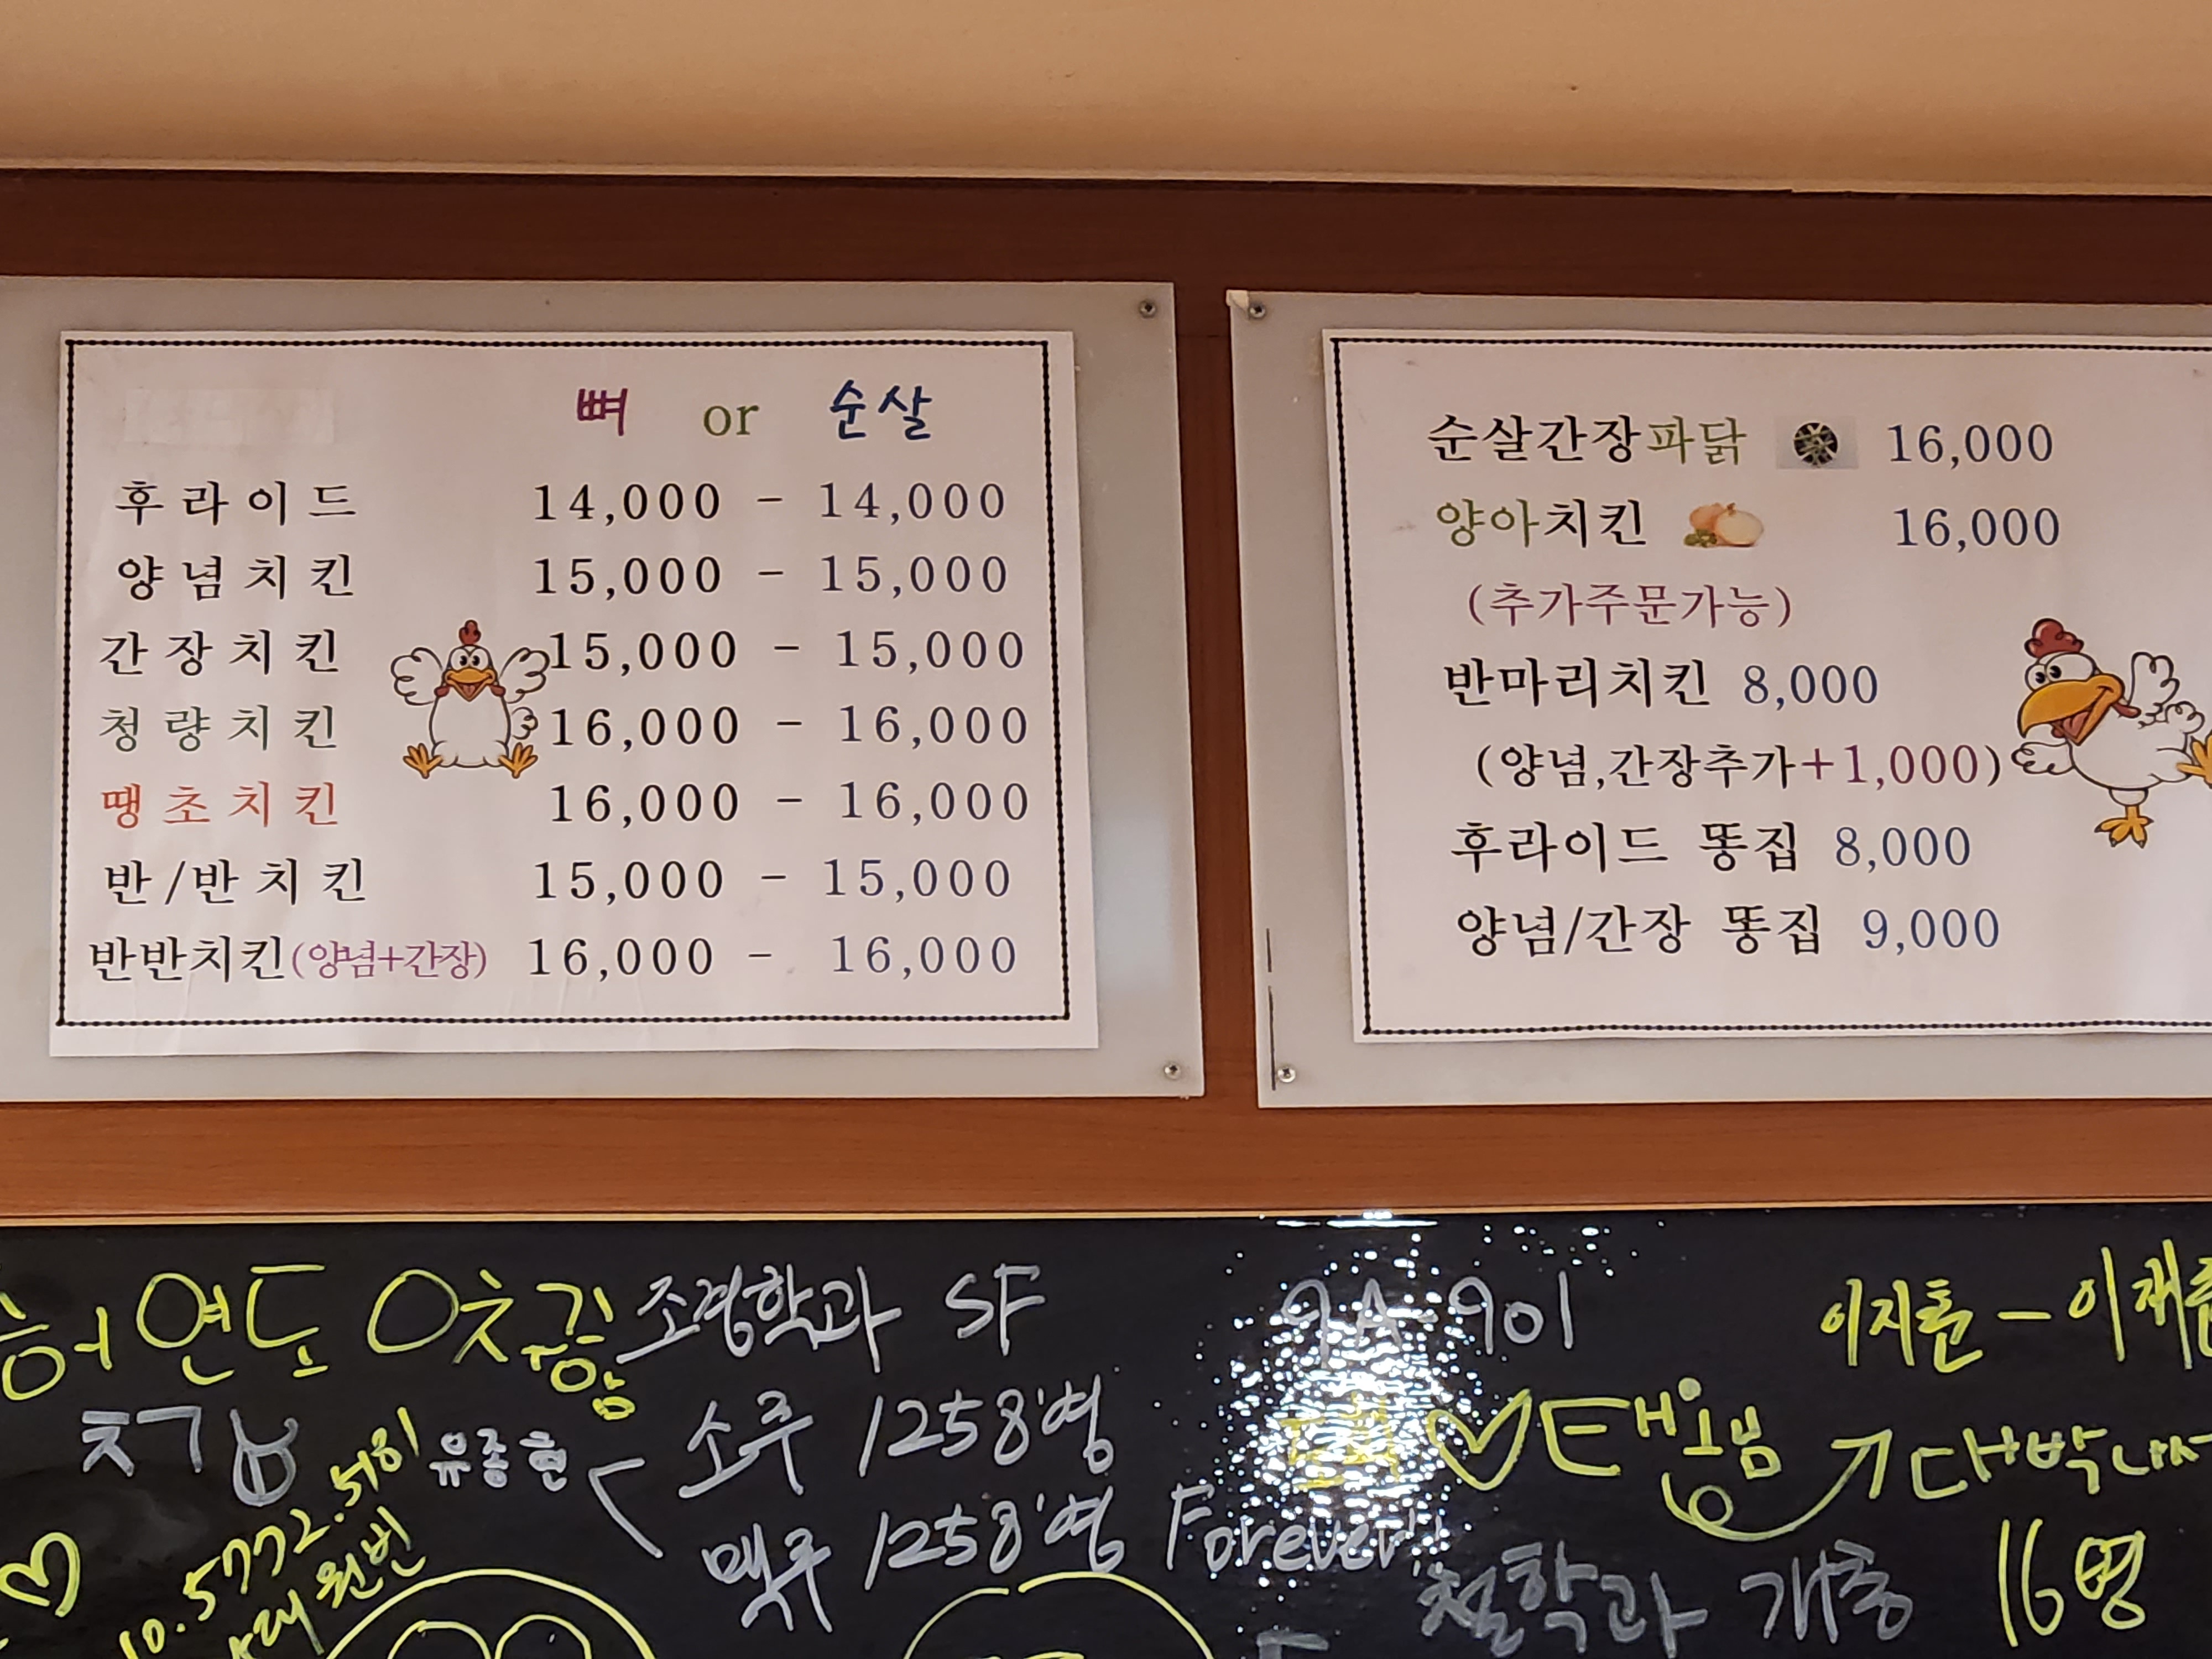 뼈 or 순살
후라이드 14,000 - 14,000
양념치킨 15,000 - 15,000
간장치킨 15,000 - 15,000
청량치킨 16,000 - 16,000
땡초치킨 16,000 - 16,000
반/반치킨 15,000 - 15,000
반반치킨(양념+간장) 16,000 - 16,000
순살간장파닭 16,000
양아치킨 16,000
(추가주문가능)
반마리치킨 8,000
(양념,간장추가+1,000)
후라이드 똥집 8,000
양념/간장 똥집 9,000
조경학과 SF
유종현
소주 1258'영
맥주 1258'영 Forever
철학과 개총 16명